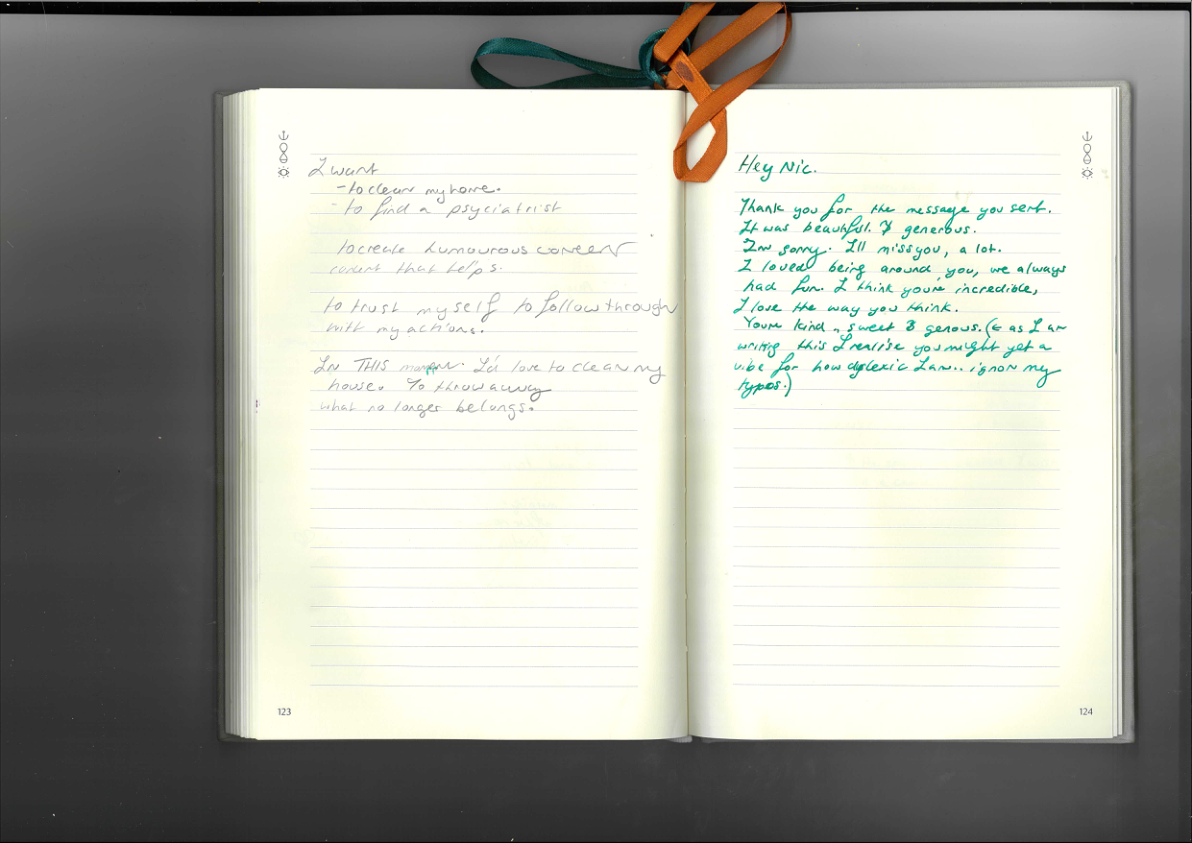 I want
- to clean my home.
- to find a psyciatrist
to create humourous
that helps.
to trust myself to follow through
with my actions.
In THIS moment. I'd love to clean my
house. To throw away
what no longer belongs.
123
Hey Nic.
Thank you for the message you sent.
It was beautiful & generous.
Im sorry. I'll miss you, a lot.
I loved being around you, we always
had fun. I think you're incredible,
I love the way you think.
Youre kind, sweet & genous. (← as I am
writing this I realise you might get a
vibe for how dylexic I am.. ignor my
typos.)
124